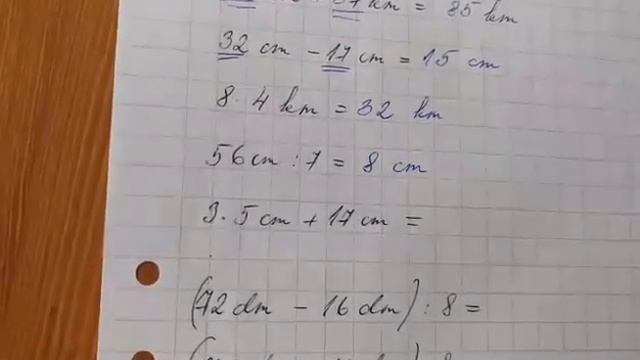 37 km = 85 km
32 cm - 17 cm = 15 cm
8 · 4 km = 32 km
56 cm : 7 = 8 cm
3 · 5 cm + 17 cm =
(72 dm - 16 dm) : 8 =